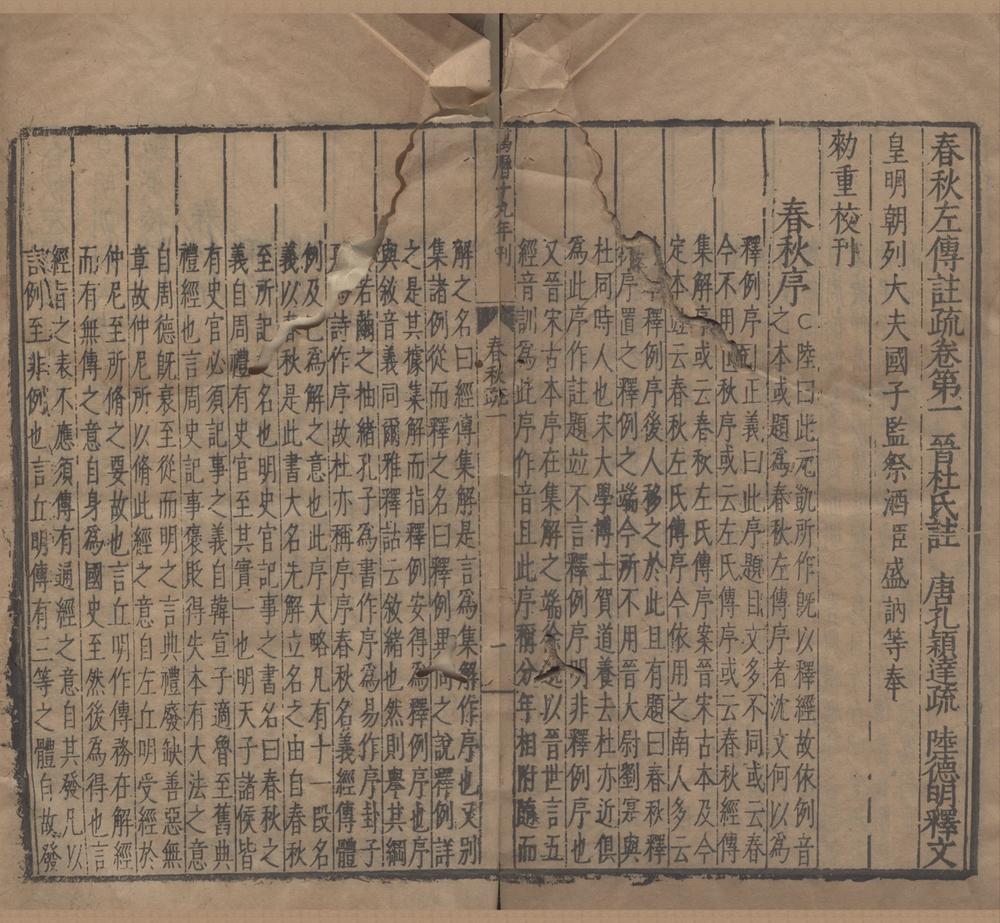 春秋左傳註疏卷第一 晉杜氏註 唐孔穎達疏 陸德明釋文
皇明朝列大夫國子監祭酒臣盛訥等奉
勑重校刊
春秋序○陸曰此元凱所作旣以釋經故依例音
之本或題爲春秋左傳序者沈文何以爲
釋例序 正義曰此序題目文多不同或云春
今不用 秋序或云左氏傳序或云春秋經傳
集解序或云春秋左氏傳序案晉宋古本及今
定本竝云春秋左氏傳序今依用之南人多云
釋例序後人移之於此且有題曰春秋釋
序置之釋例之端今所不用晉大尉劉寔與
杜同時人也宋大學博士賀道養去杜亦近俱
爲此序作註題竝不言釋例序明非釋例序也
又晉宋古本序在集解之端 以晉世言五
經音訓爲此序作音且此序稱分年相附隨而
萬曆十九年刊
春秋疏 一
解之名曰經傳集解是言爲集解作序也又別
集諸例從而釋之名曰釋例異同之說釋例詳
之是其據集解而指釋例安得爲釋例序也序
與敘音義同爾雅釋詁云敘緒也然則舉其綱
若繭之抽緒孔子爲書作序爲易作序卦子
詩作序故杜亦稱序序春秋名義經傳體
例及已爲解之意也此序大略凡有十一段名
義以春秋是此書大名先解立名之由自春秋
至所記 名也明史官記事之書名曰春秋之
義自周禮有史官至其實一也明天子諸侯皆
有史官必須記事之義自韓宣子適魯至舊典
禮經也言周史記事褒貶得失本有大法之意
自周德旣衰至從而明之言典禮廢缺善惡無
章故仲尼所以脩此經之意自左丘明受經於
仲尼至所脩之要故也言丘明作傳務在解經
而有無傳之意自身爲國史至然後爲得也言
經旨之表不應須傳有通經之意自其發凡以
言例至非例也言丘明傳有三等之體自故發